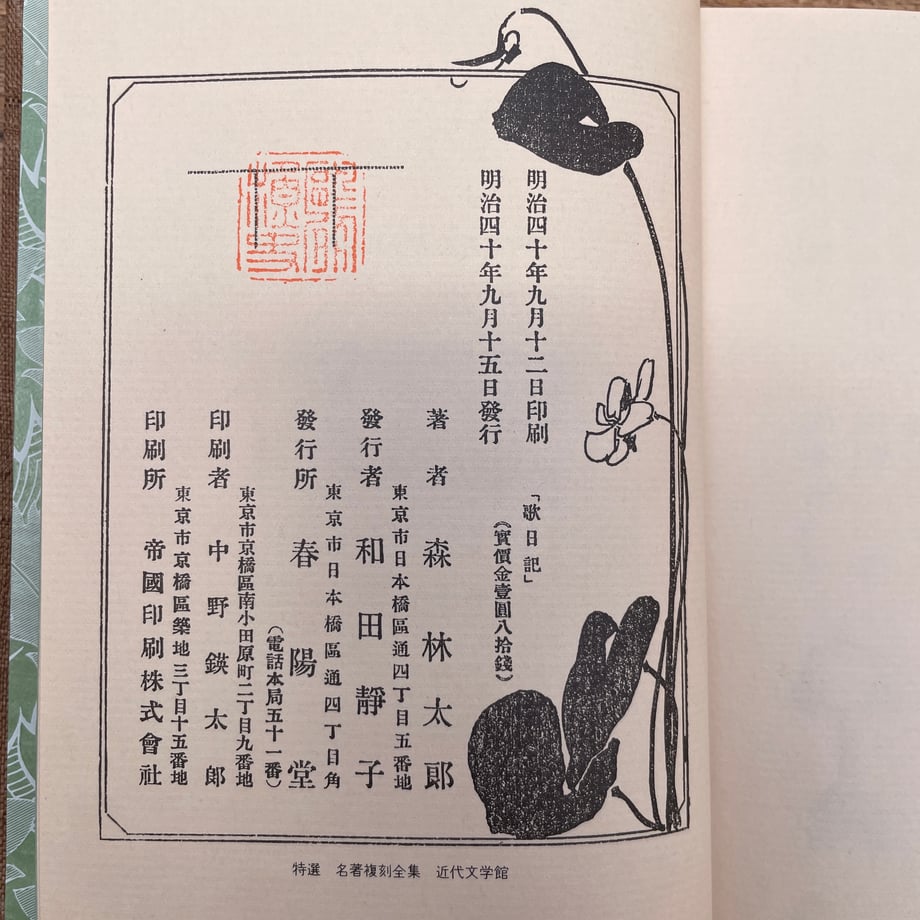 明治四十年九月十二日印刷
明治四十年九月十五日發行
「歌日記」
(實價金壹圓八拾錢)
著者 森林太郞
東京市日本橋區通四丁目五番地
發行者 和田靜子
東京市日本橋區通四丁目角
發行所 春陽堂
(電話本局五十一番)
東京市京橋區南小田原町二丁目九番地
印刷者 中野鍈太郞
東京市京橋區築地三丁目十五番地
印刷所 帝國印刷株式會社
特選 名著複刻全集 近代文学館